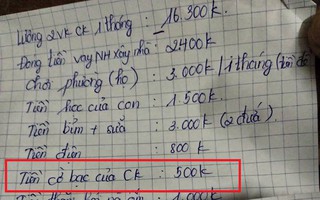 Lương 2VK CK 1 tháng : 16.300k
Đóng tiền vay NH xây nhà : 2400k
Chơi phường (họ) : 3.000k / 1 tháng
Tiền học của con : 1.500k
Tiền bỉm + sữa : 3.000k (2 đứa)
Tiền điện : 800k
Tiền cờ bạc của CK : 500k
1.000k